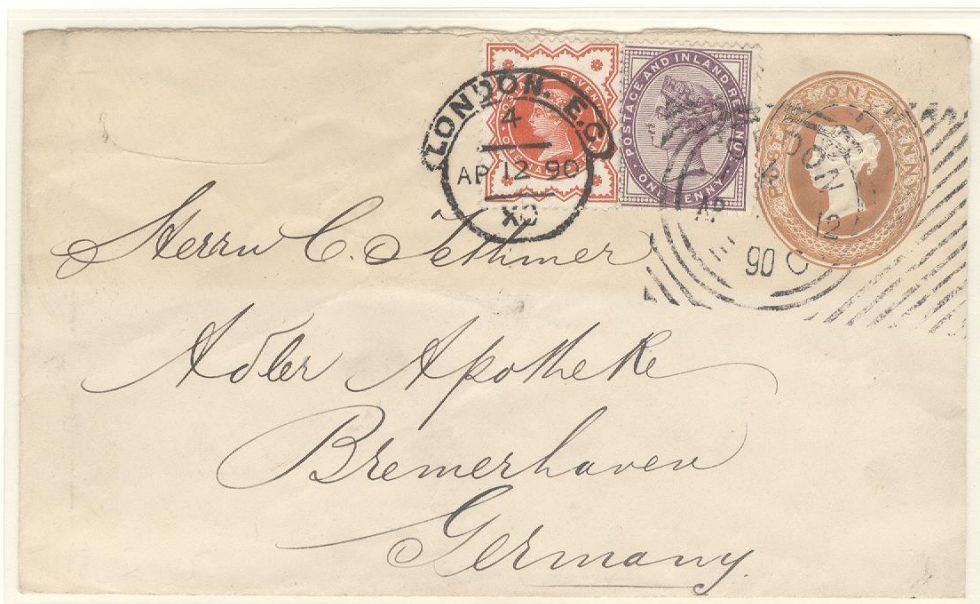 LONDON. E.C
4
AP 12 90
X
POSTAGE AND INLAND REVENUE
ONE PENNY
ONE PENNY
AP 12
90
Herrn C. Tethmer
Adler Apotheke
Bremerhaven
Germany.